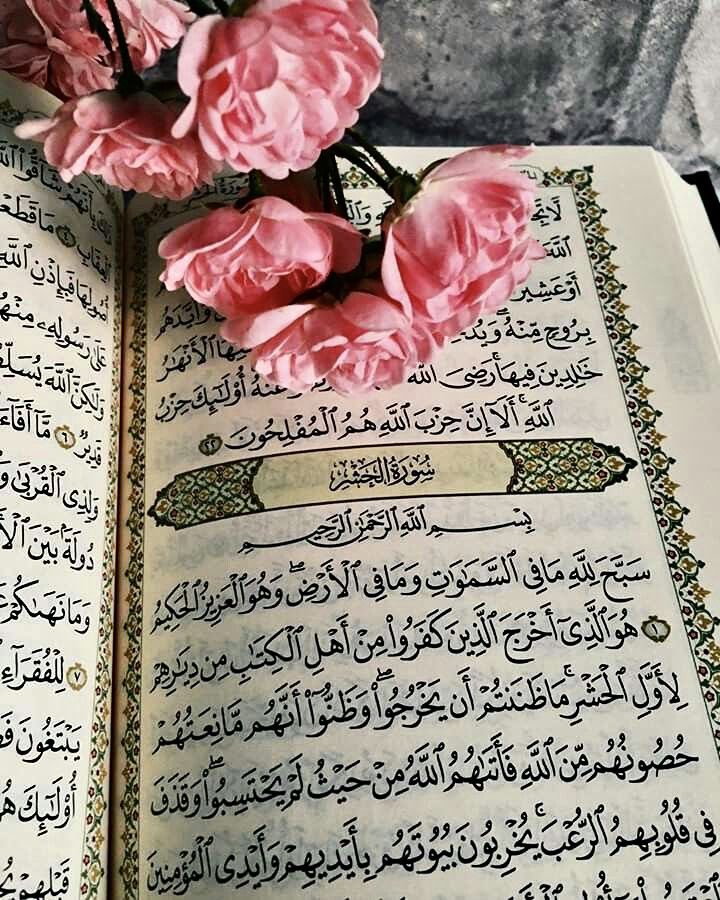 ٱللَّهَ
أَوْ وَأَيَّدَهُم
بِرُوحٍ مِّنْهُ ٱلْأَنْهَٰرُ
خَٰلِدِينَ فِيهَا ۚ رَضِىَ ٱللَّهُ عَنْهُ ۚ أُو۟لَٰٓئِكَ حِزْبُ
ٱللَّهِ ۚ أَلَآ إِنَّ حِزْبَ ٱللَّهِ هُمُ ٱلْمُفْلِحُونَ ٢٢
سُورَةُ الحَشْرِ
بِسْمِ ٱللَّهِ ٱلرَّحْمَٰنِ ٱلرَّحِيمِ
سَبَّحَ لِلَّهِ مَا فِى ٱلسَّمَٰوَٰتِ وَمَا فِى ٱلْأَرْضِ ۖ وَهُوَ ٱلْعَزِيزُ ٱلْحَكِيمُ
١ هُوَ ٱلَّذِىٓ أَخْرَجَ ٱلَّذِينَ كَفَرُوا۟ مِنْ أَهْلِ ٱلْكِتَٰبِ مِن دِيَٰرِهِمْ
لِأَوَّلِ ٱلْحَشْرِ ۚ مَا ظَنَنتُمْ أَن يَخْرُجُوا۟ ۖ وَظَنُّوٓا۟ أَنَّهُم مَّانِعَتُهُمْ
حُصُونُهُم مِّنَ ٱللَّهِ فَأَتَىٰهُمُ ٱللَّهُ مِنْ حَيْثُ لَمْ يَحْتَسِبُوا۟ ۖ وَقَذَفَ
فِى قُلُوبِهِمُ ٱلرُّعْبَ ۚ يُخْرِبُونَ بُيُوتَهُم بِأَيْدِيهِمْ وَأَيْدِى ٱلْمُؤْمِنِينَ
ذَٰلِكَ بِأَنَّهُمْ شَآقُّوا۟ ٱللَّهَ
ٱلْعِقَابِ ٤ مَا قَطَعْ
أُصُولِهَا فَبِإِذْنِ ٱللَّهِ
عَلَىٰ رَسُولِهِۦ مِنْهُمْ
وَلَٰكِنَّ ٱللَّهَ يُسَلِّطُ
قَدِيرٌ ٦ مَّآ أَفَآءَ
وَلِذِى ٱلْقُرْبَىٰ
دُولَةًۢ بَيْنَ
وَمَا نَهَىٰكُمْ
٧ لِلْفُقَرَآءِ
يَبْتَغُونَ
أُو۟لَٰٓئِكَ
قَبْلِهِمْ